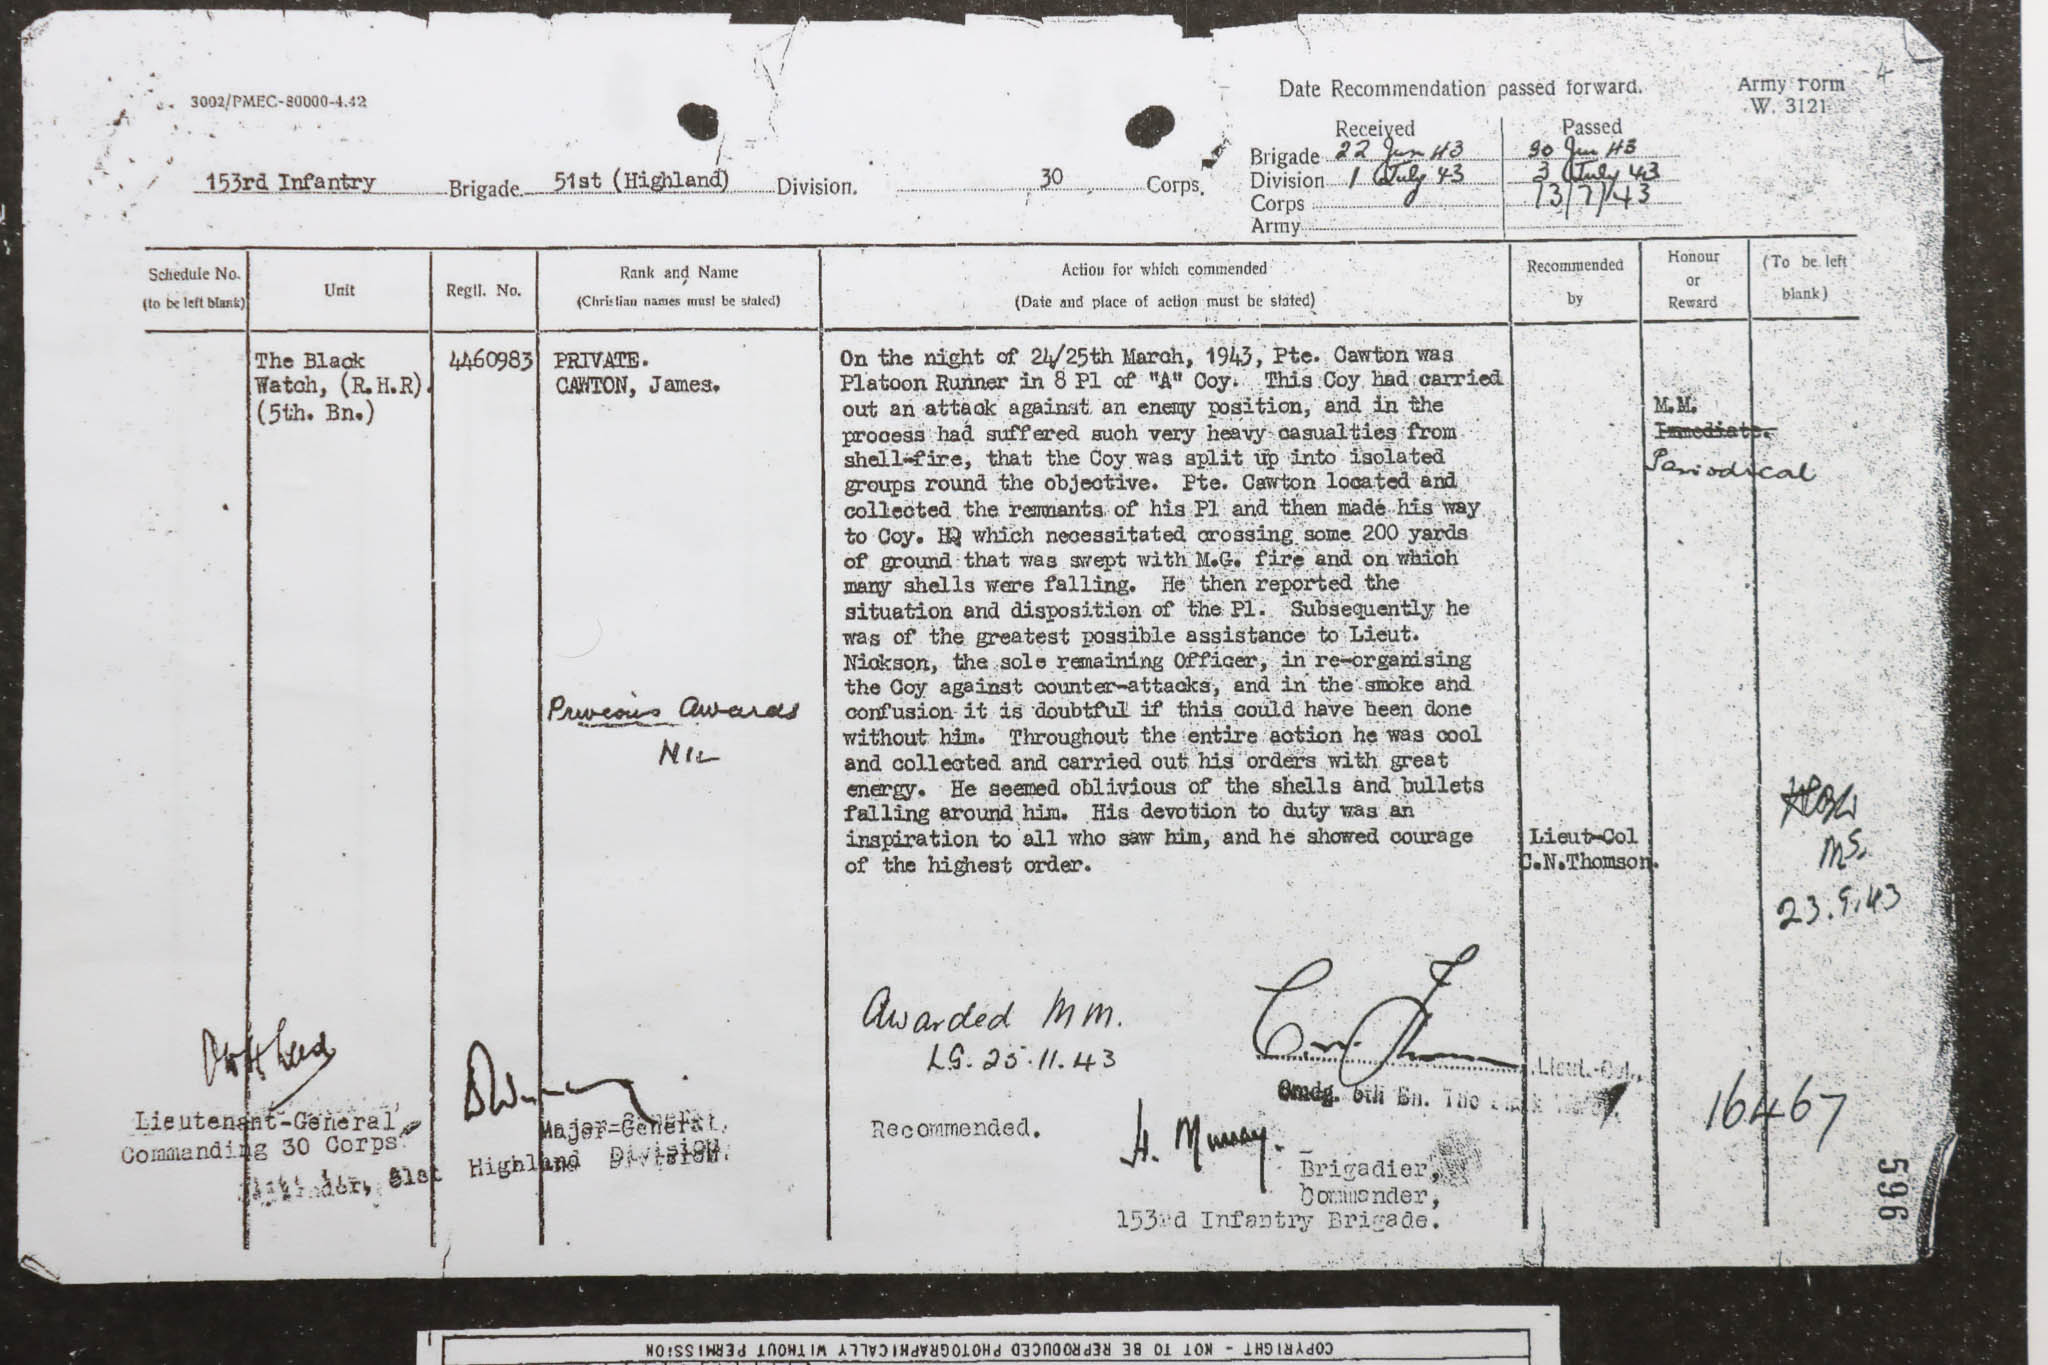 3002/PMEC-80000-4.42
Date Recommendation passed forward.
Army Form
W. 3121
4
Received Passed
Brigade 22 Jun 43 30 Jun 43
Division 1 July 43 3 July 43
Corps 13/7/43
Army
153rd Infantry Brigade. 51st (Highland) Division. 30 Corps.
Schedule No.
(to be left blank)
Unit
Regtl. No.
Rank and Name
(Christian names must be stated)
Action for which commended
(Date and place of action must be stated)
Recommended
by
Honour
or
Reward
(To be left
blank)
The Black
Watch, (R.H.R).
(5th. Bn.)
4460983
PRIVATE.
CAWTON, James.
On the night of 24/25th March, 1943, Pte. Cawton was
Platoon Runner in 8 Pl of "A" Coy. This Coy had carried
out an attack against an enemy position, and in the
process had suffered such very heavy casualties from
shell-fire, that the Coy was split up into isolated
groups round the objective. Pte. Cawton located and
collected the remnants of his Pl and then made his way
to Coy. HQ which necessitated crossing some 200 yards
of ground that was swept with M.G. fire and on which
many shells were falling. He then reported the
situation and disposition of the Pl. Subsequently he
was of the greatest possible assistance to Lieut.
Nickson, the sole remaining Officer, in re-organising
the Coy against counter-attacks, and in the smoke and
confusion it is doubtful if this could have been done
without him. Throughout the entire action he was cool
and collected and carried out his orders with great
energy. He seemed oblivious of the shells and bullets
falling around him. His devotion to duty was an
inspiration to all who saw him, and he showed courage
of the highest order.
Previous Awards
NIL
Lieut-Col
C.N.Thomson.
M.M.
Immediate.
Periodical
MS
23.9.43
Awarded MM.
LG. 25.11.43
Lieut.-Col.,
Cmdg. 5th Bn. The
Recommended.
H. Murray.
Brigadier,
Commander,
153rd Infantry Brigade.
Lieutenant-General,
Commanding 30 Corps.
Major-General,
51st Highland Division.
16467
596
COPYRIGHT - NOT TO BE REPRODUCED PHOTOGRAPHICALLY WITHOUT PERMISSION